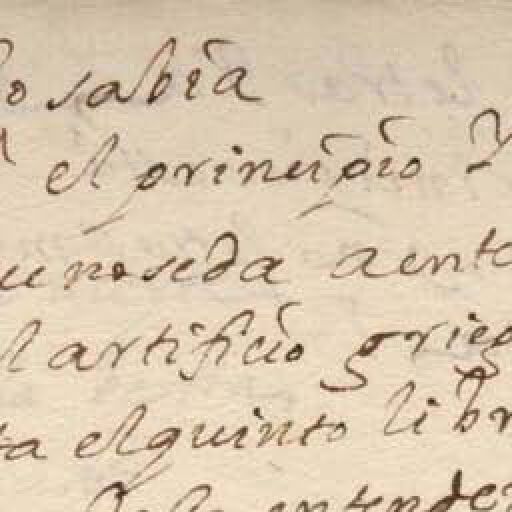 o sabia
el principio y
ue no se da a ento
l artificio grieg
ta el quinto libr
entender